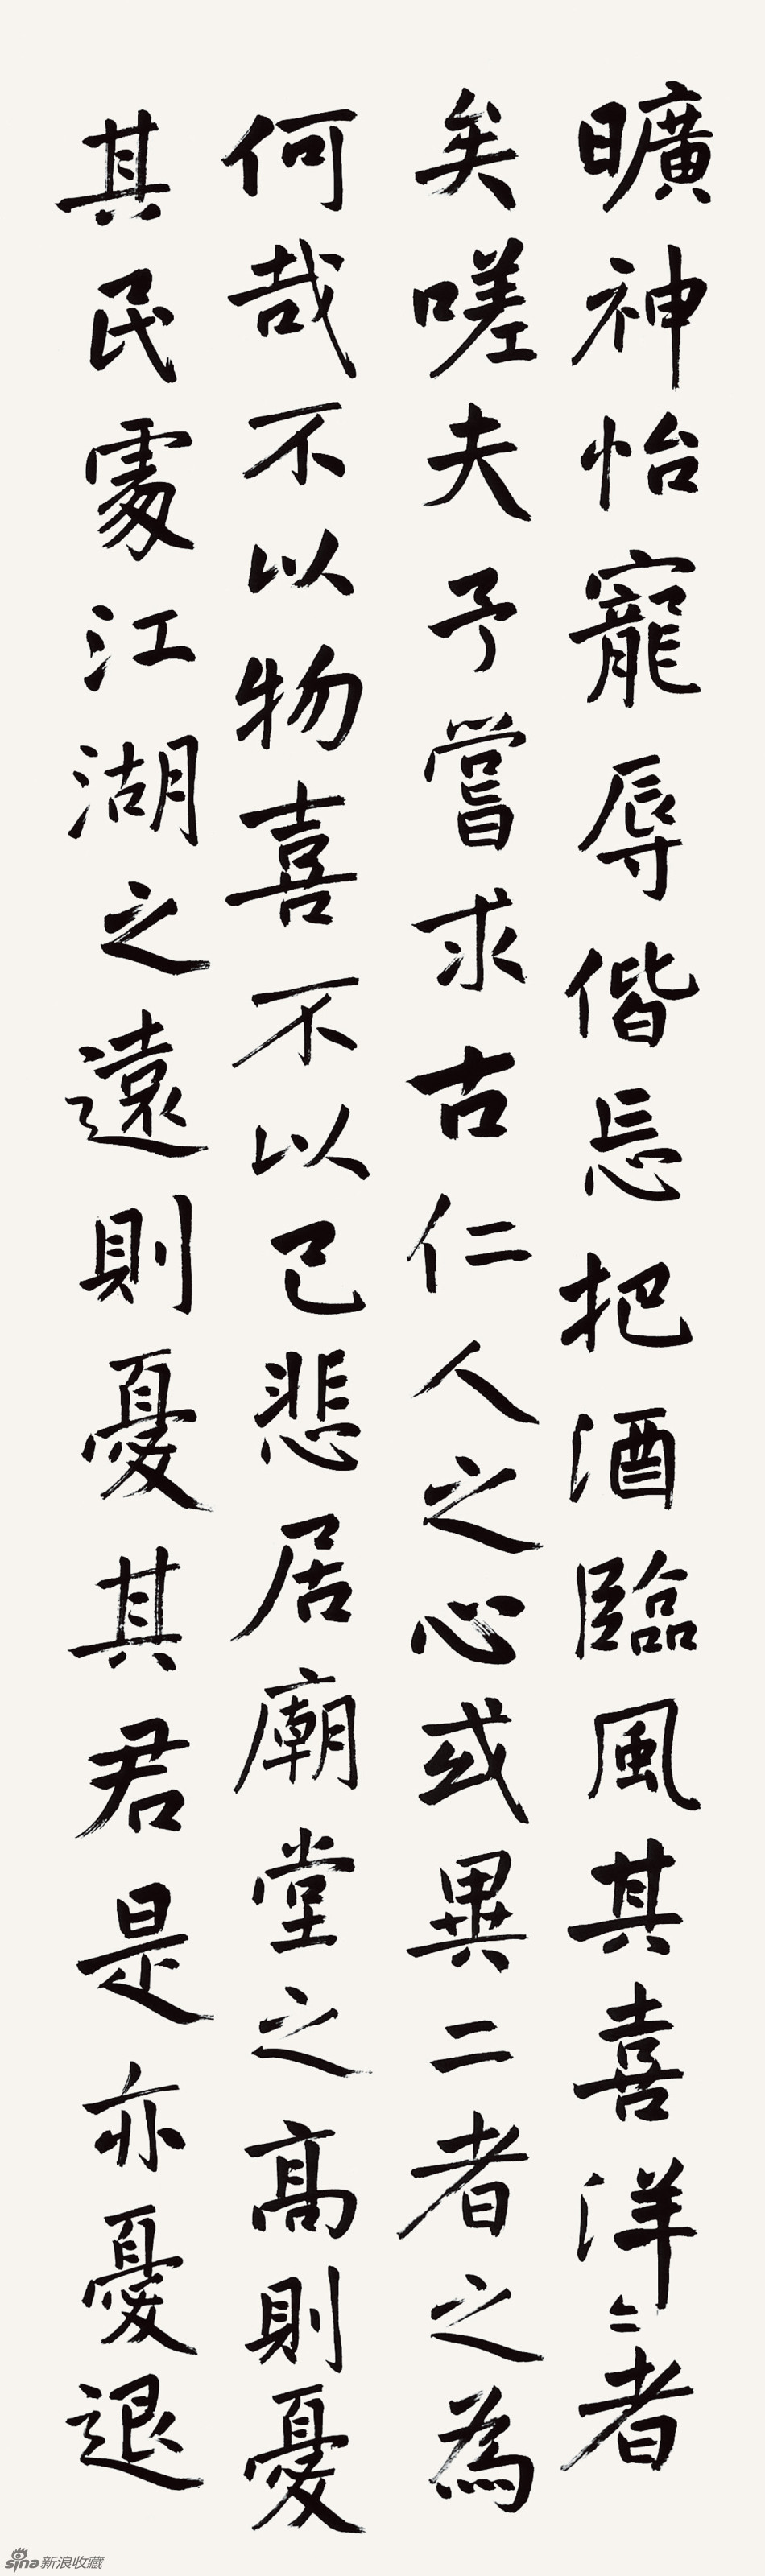 曠神怡寵辱偕忘把酒臨風其喜洋〻者
矣嗟夫予嘗求古仁人之心或異二者之為
何哉不以物喜不以己悲居廟堂之高則憂
其民處江湖之遠則憂其君是亦憂退
sina新浪收藏